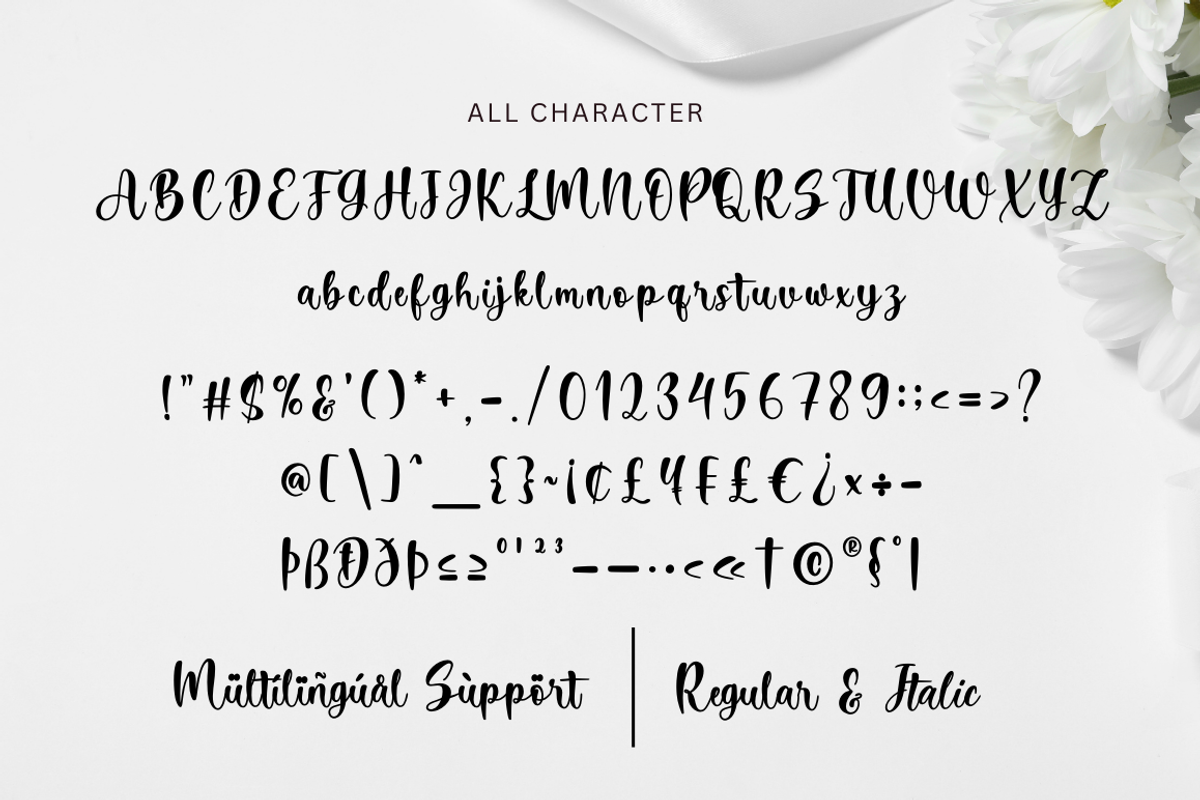 ALL CHARACTER
ABCDEFGHIJKLMNOPQRSTUVWXYZ
abcdefghijklmnopqrstuvwxyz
!"#$%&'()*+,-./0123456789:;<=>?
@[\]^_{}~¡¢£¥₣£€¿×÷-
ÞßÐðþ≤≥⁰¹²³–—··<«†©®§°|
Mültílïñgúâl Sùppört | Regular & Italic